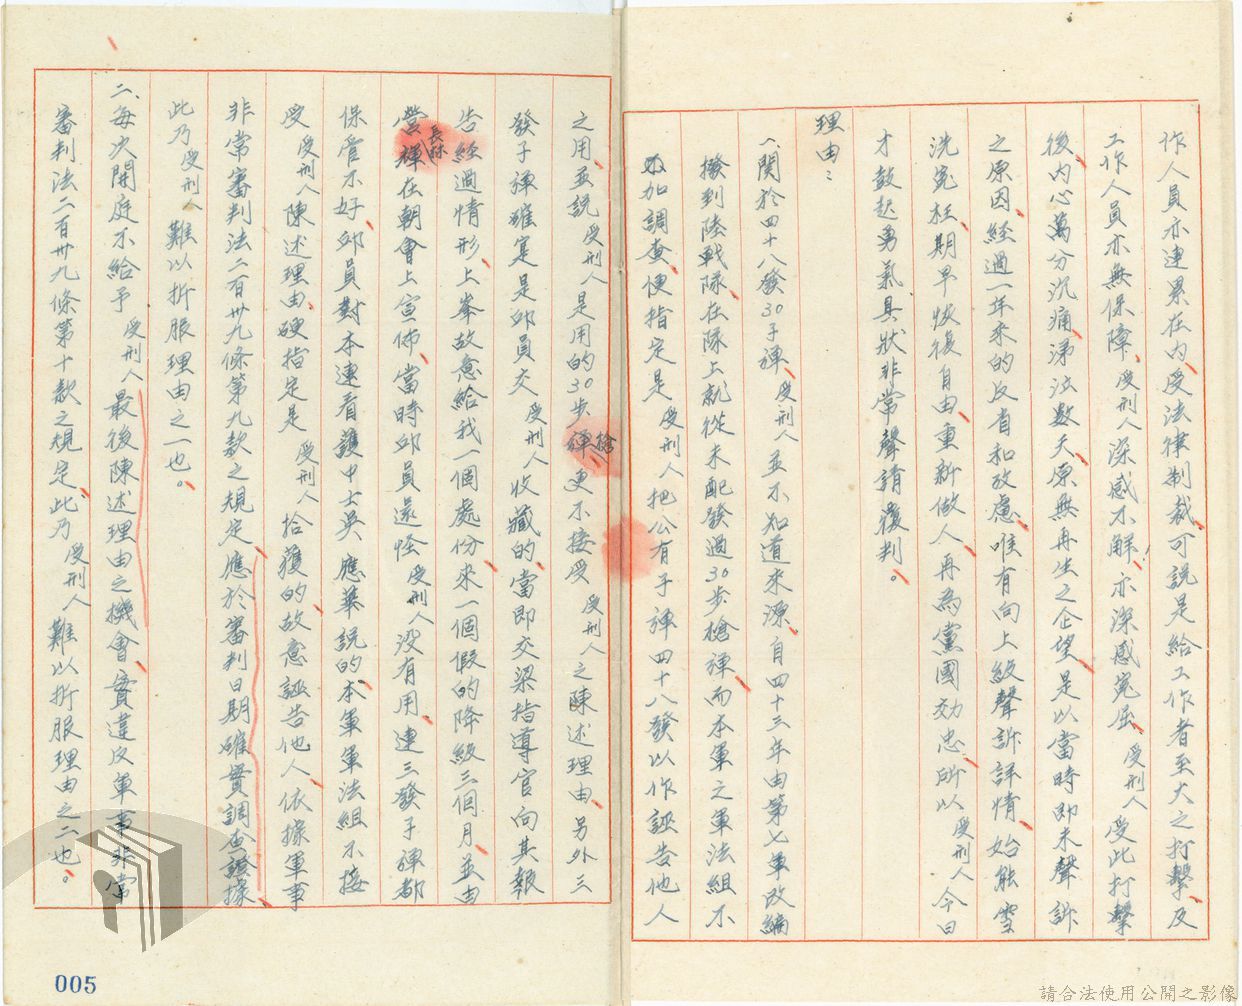 作人員亦連累在內、受法律制裁、可說是給工作者至大之打擊、及
工作人員亦無保障、受刑人深感不解、亦深感冤屈、受刑人受此打擊
後、內心萬分沉痛、涕泣數天、原無再生之企望、是以當時即未聲訴
之原因、經過一年來的反省和攷慮、唯有向上級聲訴詳情、始能雪
洗冤枉、期早恢復自由、重新做人、再為黨國効忠、所以受刑人今日
才鼓起勇氣具狀非常聲請覆判。
理由：
一、關於四十八發30子彈、受刑人並不知道來源、自四十三年由第七軍改編
撥到陸戰隊、在隊上就從未配發過30步槍彈、而本軍之軍法組不
加調查、便指定是受刑人把公有子彈四十八發以作誣告他人
之用、並說受刑人是用的30步槍彈、更不接受受刑人之陳述理由、另外三
發子彈確定是邱員交受刑人收藏的、當即交梁指導官向其報
告經過情形、上峯故意給我一個處份、來一個假的降級三個月、並由
營長林禪在朝會上宣佈、當時邱員還怪受刑人沒有用、連三發子彈都
保管不好、邱員對本連看護中士吳應華說的、本軍軍法組不接
受受刑人陳述理由、硬指定是受刑人拾獲的故意誣告他人、依據軍事
非常審判法二百卅九條第九款之規定、應於審判日期確實調查證據、
此乃受刑人難以折服理由之一也。
二、每次開庭不給予受刑人最後陳述理由之機會、實違反軍事非常
審判法二百卅九條第十款之規定、此乃受刑人難以折服理由之二也。
005
請合法使用公開之影像